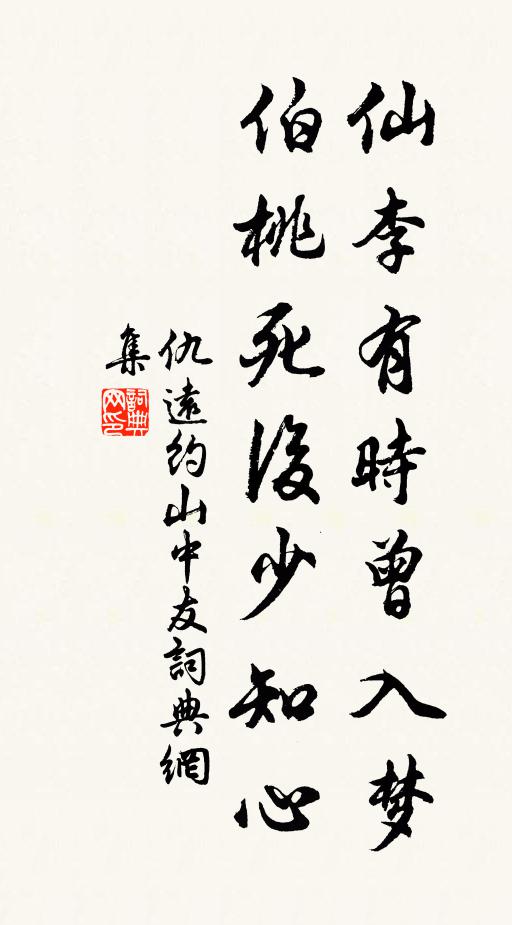 仙李有時曾入梦
伯桃死後少知心
仇遠約山中友詞典網
集
詞典
网印